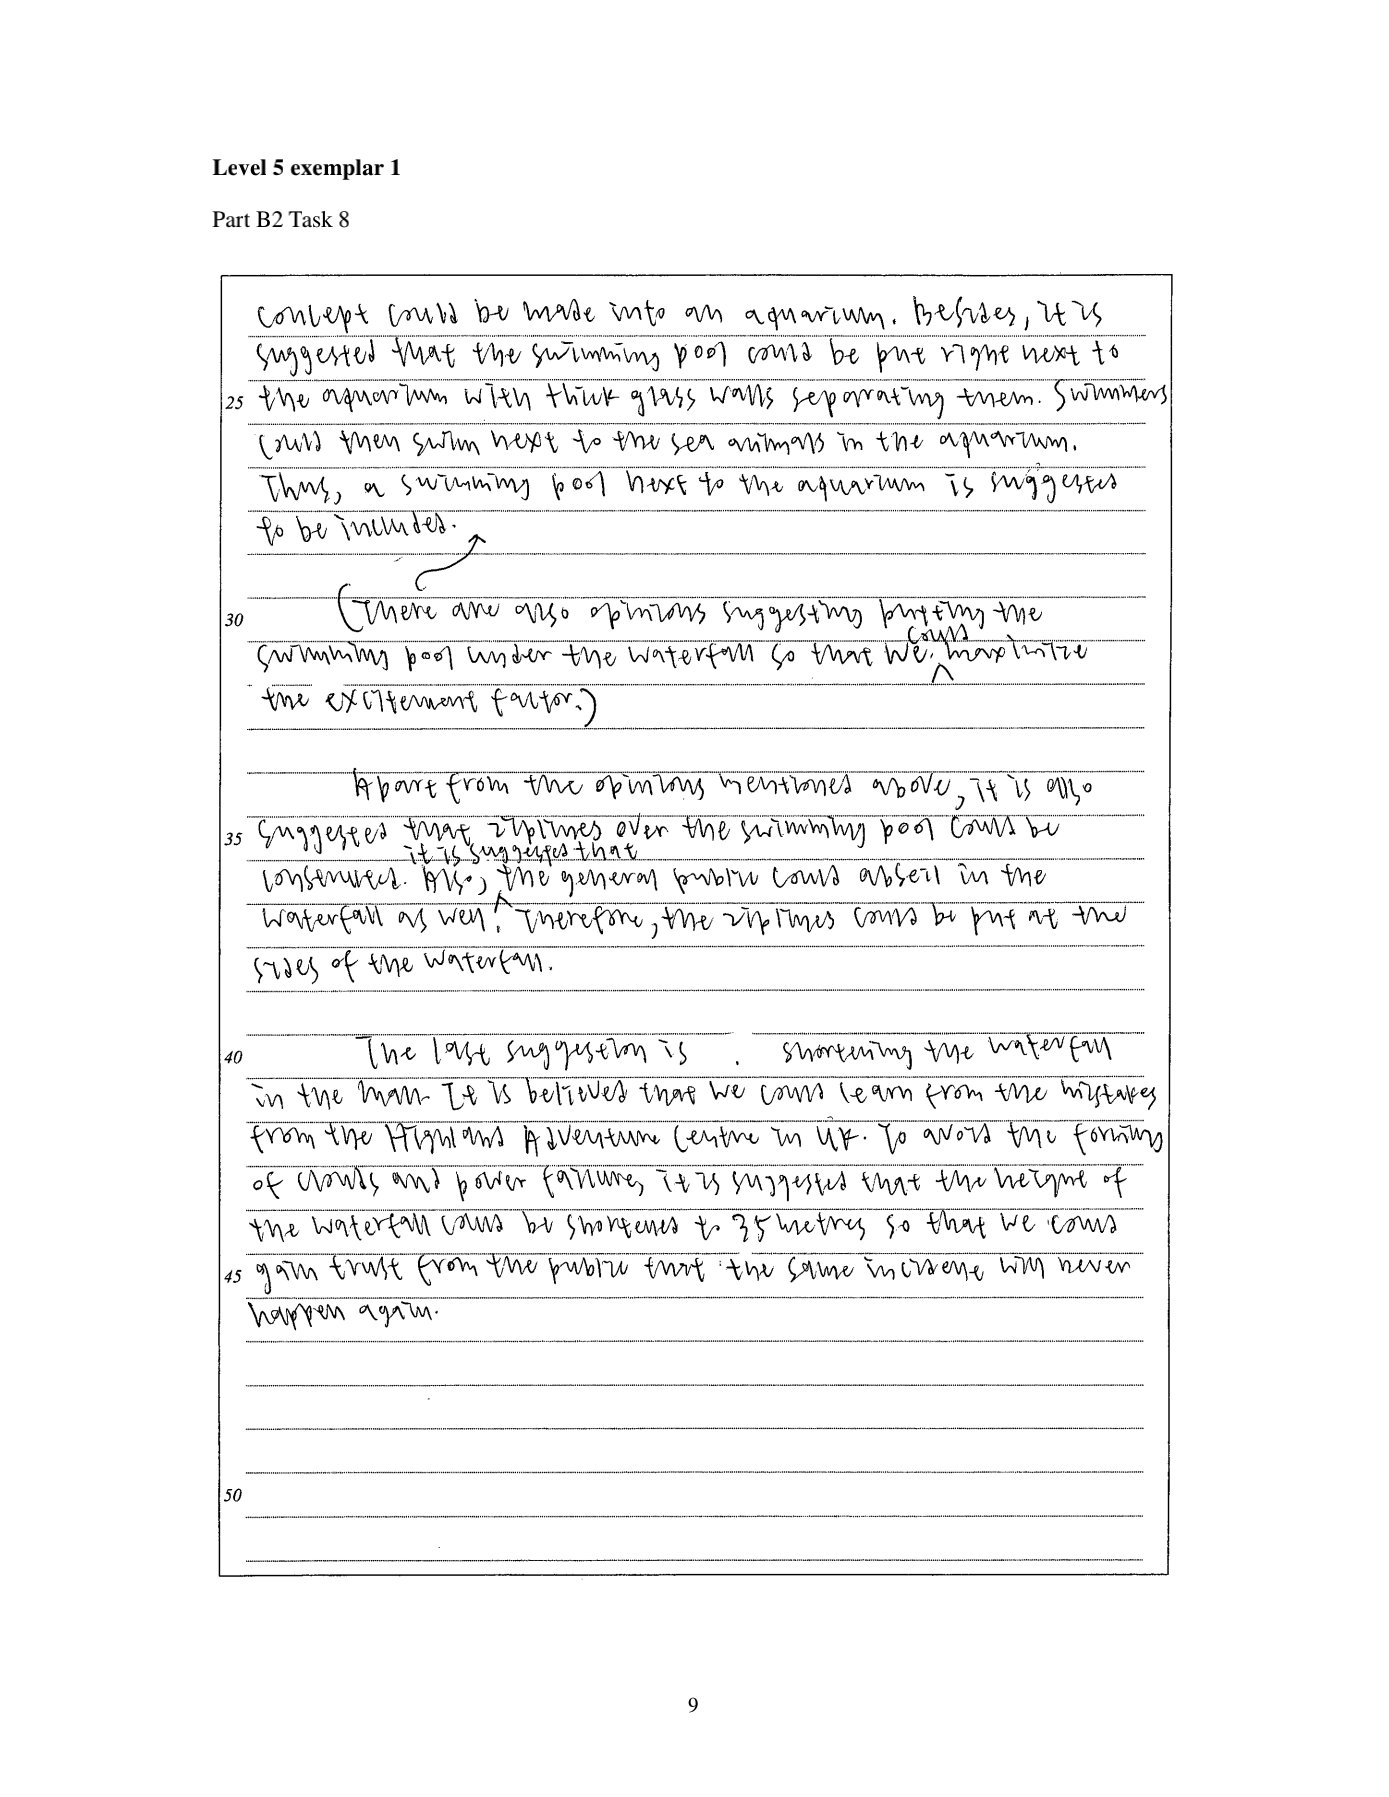 Level 5 exemplar 1
Part B2 Task 8
concept could be made into an aquarium. Besides, it is
suggested that the swimming pool could be put right next to
25 the aquarium with thick glass walls separating them. Swimmers
could then swim next to the sea animals in the aquarium.
Thus, a swimming pool next to the aquarium is suggested
to be included.
30 (There are also opinions suggesting putting the
could
swimming pool under the waterfall so that we maximize
the excitement factor.)
Apart from the opinions mentioned above, it is also
35 suggested that ziplines over the swimming pool could be
it is suggested that
constructed. Also, the general public could abseil in the
waterfall as well. Therefore, the ziplines could be put at the
sides of the waterfall.
40 The last suggestion is shortening the waterfall
in the mall. It is believed that we could learn from the mistakes
from the Highland Adventure Centre in UK. To avoid the forming
of clouds and power failure, it is suggested that the height of
the waterfall could be shortened to 35 metres so that we could
45 gain trust from the public that the same incidene will never
happen again.
50
9